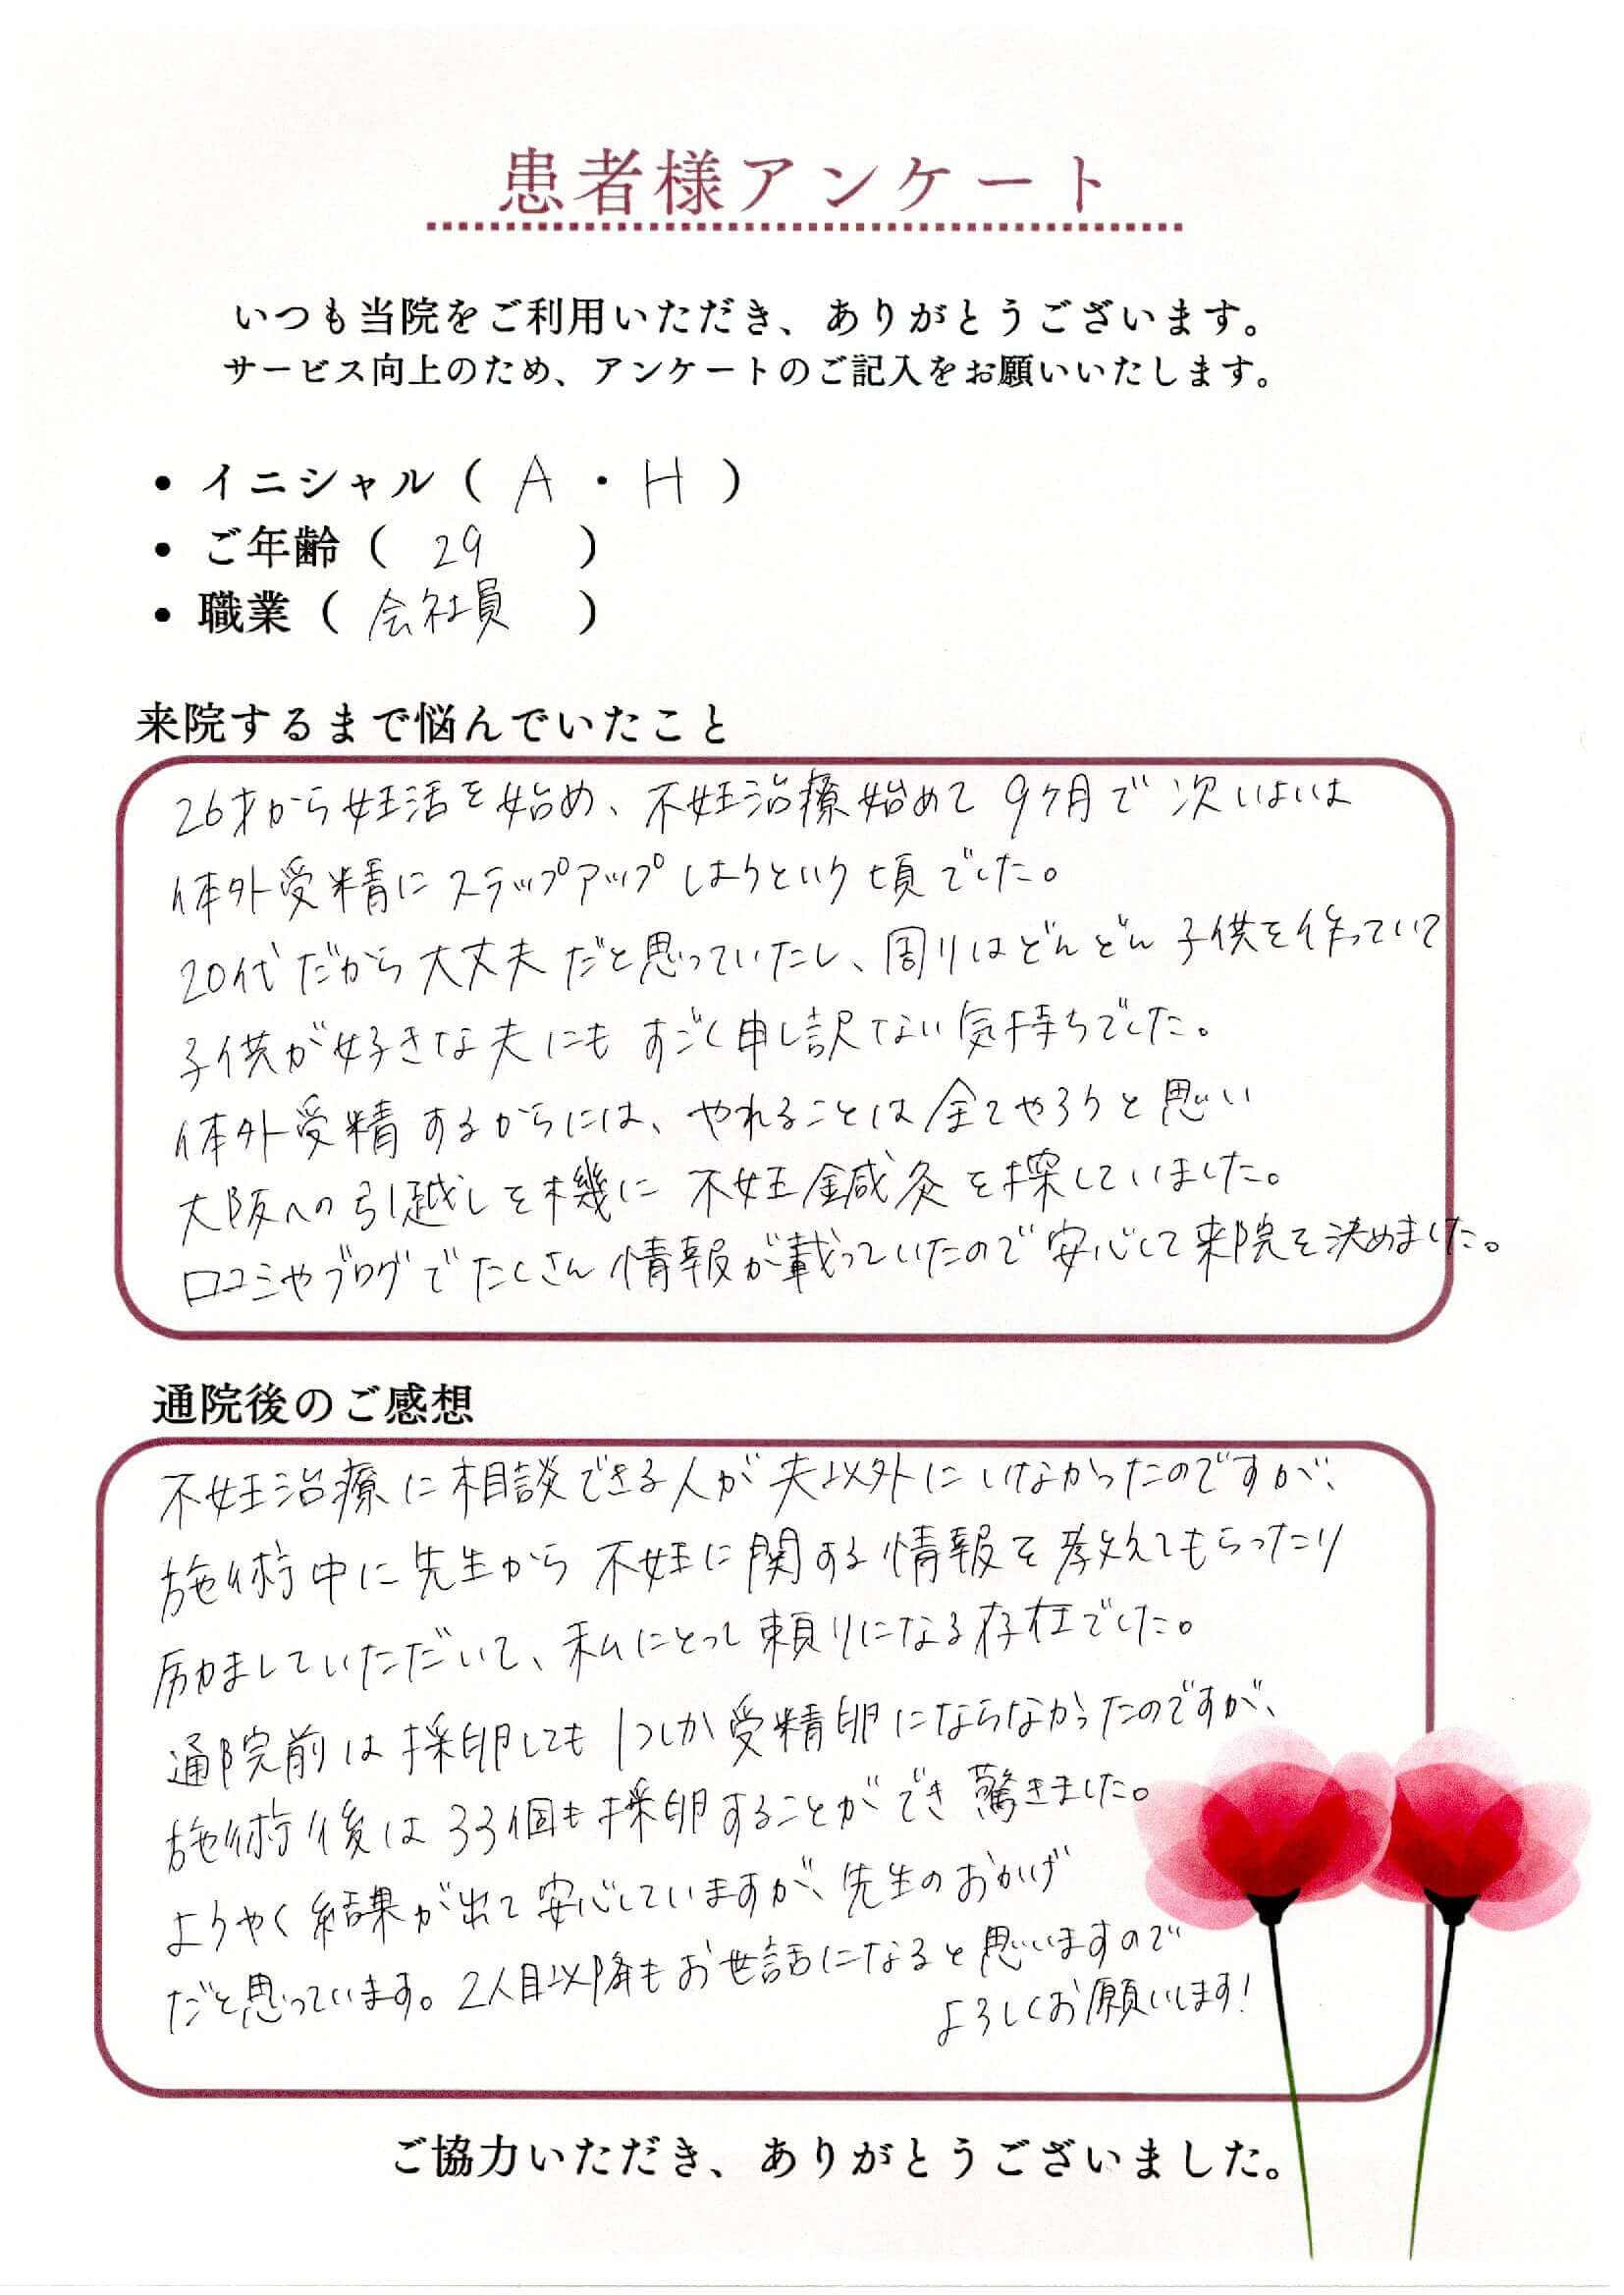 患者様アンケート
いつも当院をご利用いただき、ありがとうございます。
サービス向上のため、アンケートのご記入をお願いいたします。
• イニシャル（ A ・ H ）
• ご年齢（ 29 ）
• 職業（ 会社員 ）
来院するまで悩んでいたこと
26才から妊活を始め、不妊治療始めて9ヶ月で次いよいよ
体外受精にステップアップしようという頃でした。
20代だから大丈夫だと思っていたし、周りはどんどん子供を作っていて
子供が好きな夫にもすごく申し訳ない気持ちでした。
体外受精するからには、やれることは全てやろうと思い
大阪への引越しを機に不妊鍼灸を探していました。
口コミやブログでたくさん情報が載っていたので安心して来院を決めました。
通院後のご感想
不妊治療に相談できる人が夫以外にいなかったのですが、
施術中に先生から不妊に関する情報を教えてもらったり
励ましていただいて、私にとって頼りになる存在でした。
通院前は採卵しても1つしか受精卵にならなかったのですが、
施術後は33個も採卵することができ驚きました。
ようやく結果が出て安心していますが、先生のおかげ
だと思っています。2人目以降もお世話になると思いますので
よろしくお願いします!
ご協力いただき、ありがとうございました。